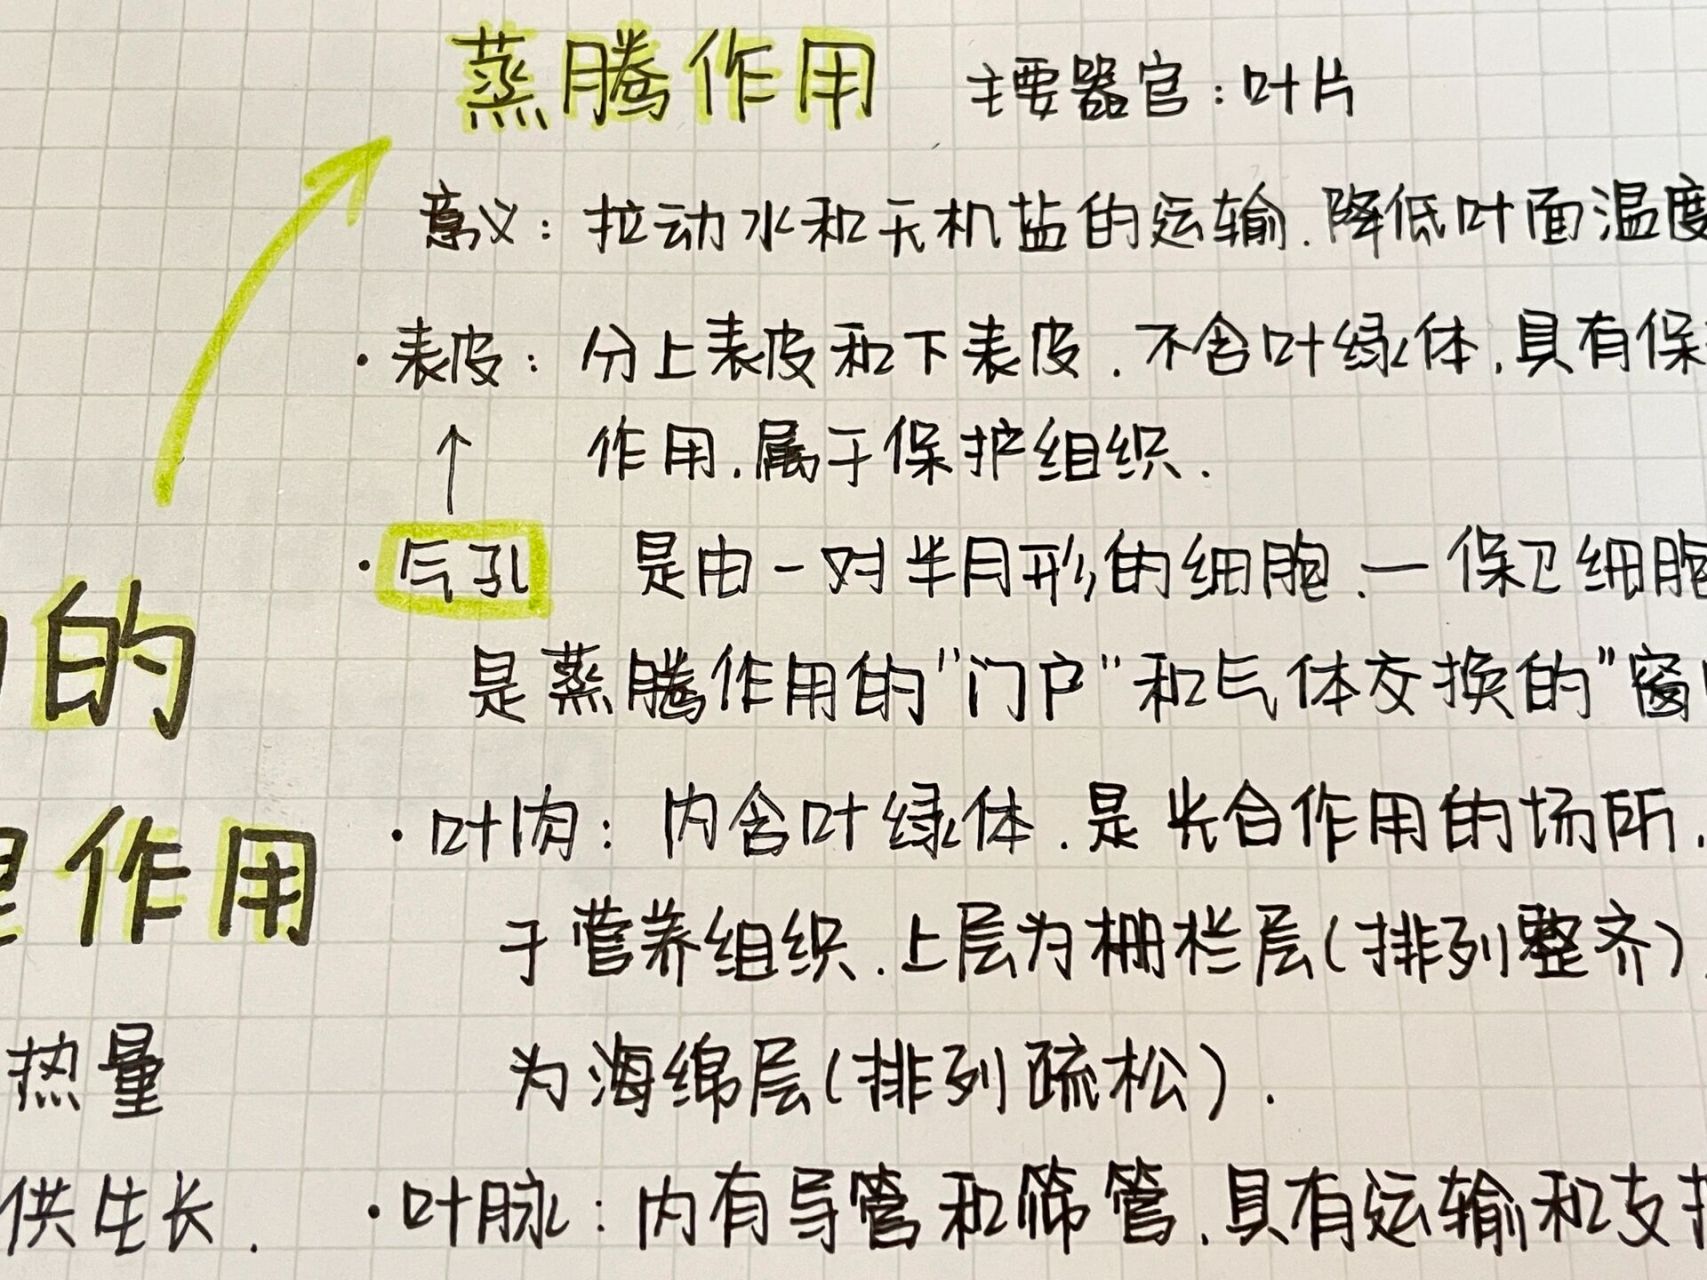 蒸腾作用 主要器官：叶片
意义：拉动水和无机盐的运输.降低叶面温度
·表皮：分上表皮和下表皮.不含叶绿体,具有保
作用.属于保护组织.
↑
·气孔 是由一对半月形的细胞.—保卫细胞
是蒸腾作用的"门户"和气体交换的"窗
·叶肉：内含叶绿体.是光合作用的场所.
于营养组织.上层为栅栏层(排列整齐)
为海绵层(排列疏松).
·叶脉：内有导管和筛管.具有运输和支
的
作用
热量
供生长.